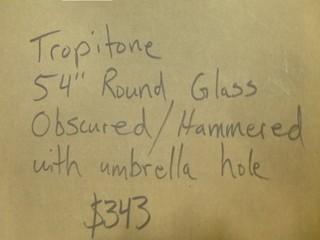 Tropitone
54" Round Glass
Obscured/Hammered
with umbrella hole
$343